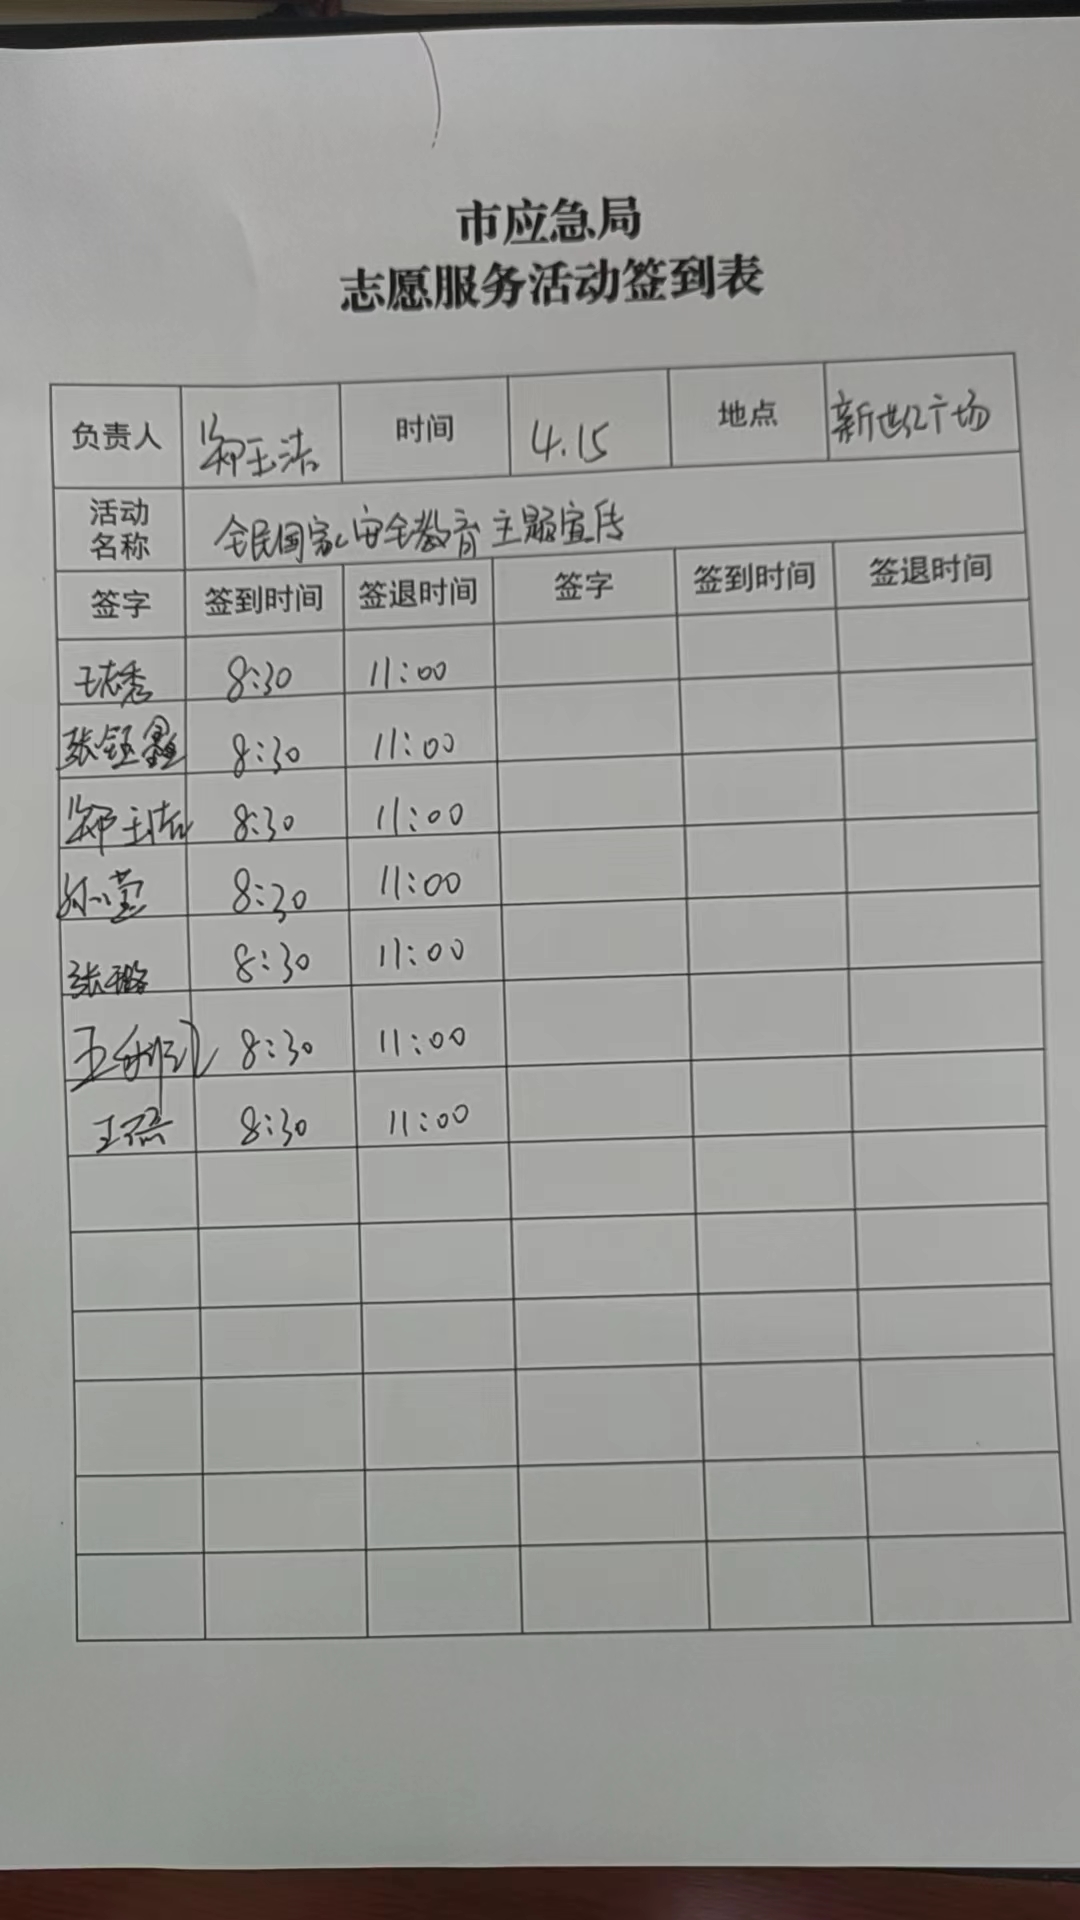 市应急局
志愿服务活动签到表
负责人 郑玉洁 时间 4.15 地点 新世纪广场
活动名称 全民国家安全教育主题宣传
签字 签到时间 签退时间 签字 签到时间 签退时间
王志秀 8:30 11:00
张钰鑫 8:30 11:00
郑玉洁 8:30 11:00
孙莹 8:30 11:00
张璐 8:30 11:00
王 8:30 11:00
王磊 8:30 11:00